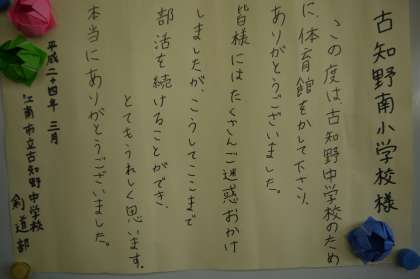 古知野南小学校様
この度は古知野中学校のため
に、体育館をかして下さり、
ありがとうございました。
皆様にはたくさんご迷惑おかけ
しましたが、こうしてここまで
部活を続けることができ、
とてもうれしく思います。
本当にありがとうございました。
平成二十四年 三月
江南市立古知野中学校
剣道部